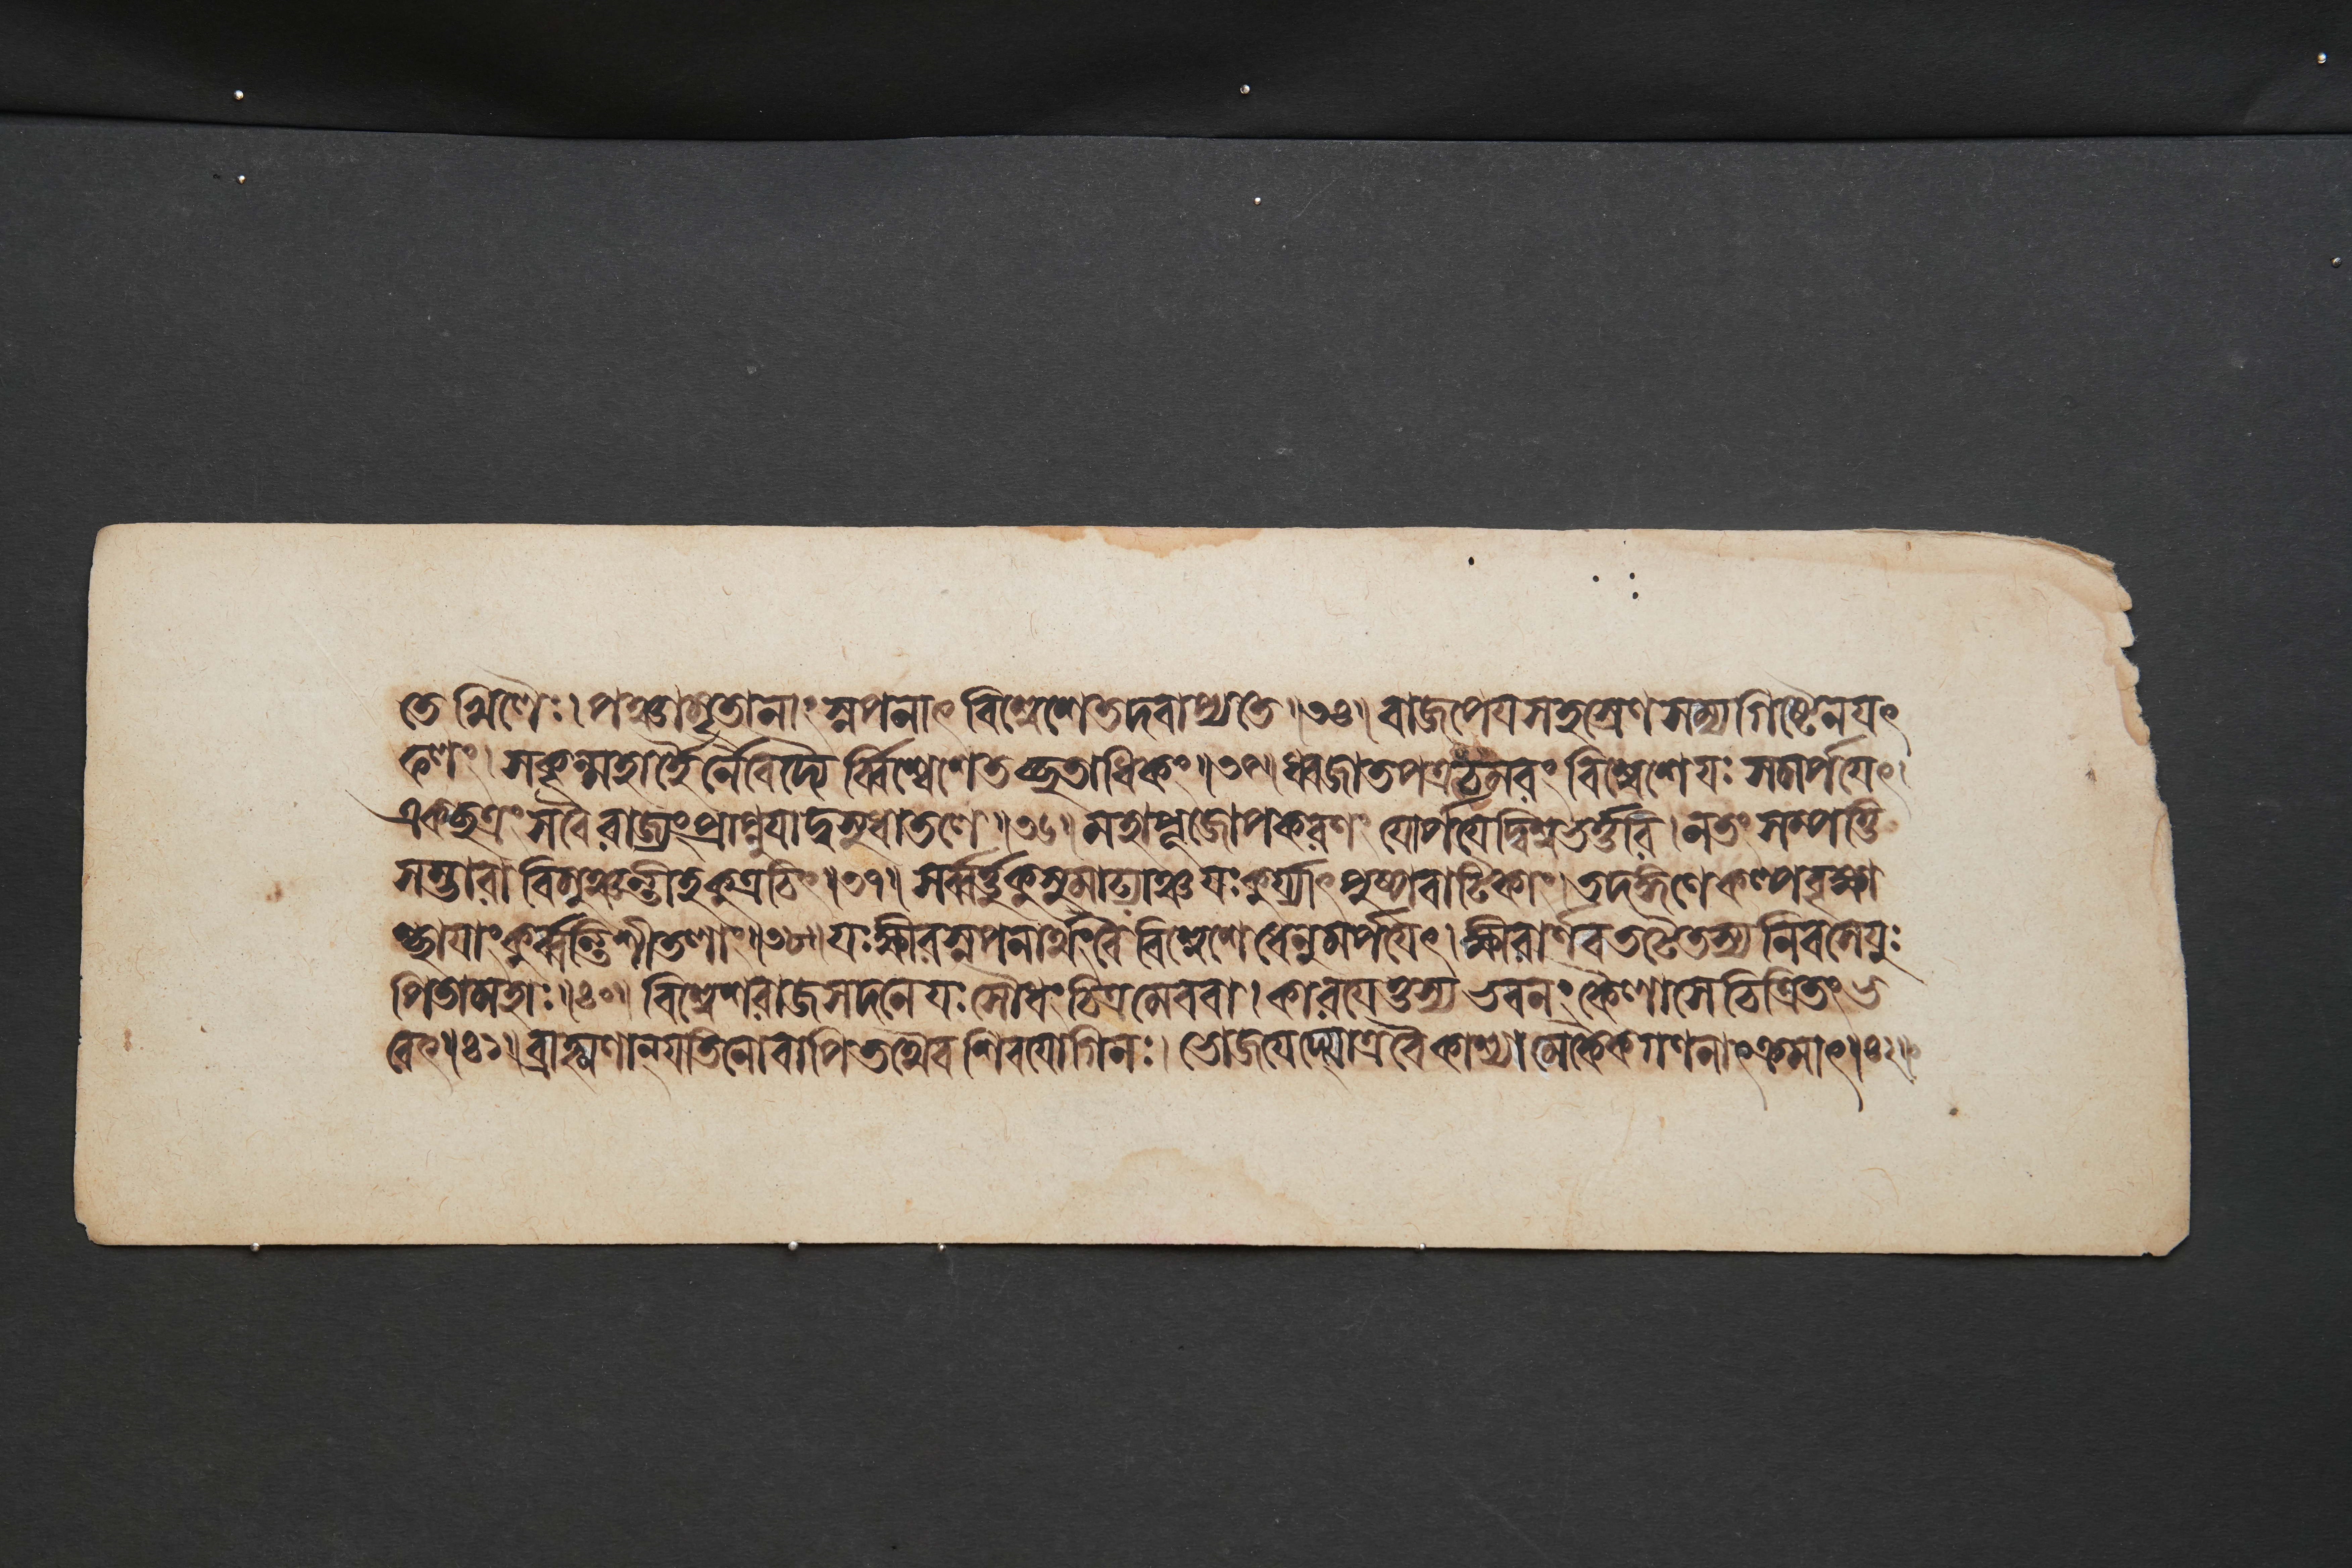 তেখিলৈঃ। পঞ্চামৃতানাং স্নপনাৎ বিশ্বেশে তদবাপ্যতে॥৩৪॥ বাজপেযসহস্রেণ সম্যগিষ্টেন যৎ
ফলং। সকৃন্মহার্হৈর্নৈবেদ্যৈ র্ব্বিশ্বেশে তচ্ছতাধিকং॥৩৫॥ ধ্বজাতপত্রচমৰং বিশ্বেশে যঃ সমর্পযেৎ।
একছত্রং স বৈ ৰাজ্যং প্রাপ্নুযাদ্বসুধাতলে॥৩৬॥ মহাপূজোপকৰণং যোর্পযেদ্বিশ্বভর্ত্তৰি। ন তং সম্পত্তি
সম্ভাৰা বিমুঞ্চন্তীহ কুত্রচিৎ॥৩৭॥ সর্ব্বর্ত্তুকুসুমাঢ্যাঞ্চ যঃ কুর্য্যাৎ পুষ্পবাটিকাং। তদঙ্গণে কল্পবৃক্ষা
শ্ছাযাং কুর্ব্বন্তি শীতলাং॥৩৮॥ যঃ ক্ষীৰস্নপনার্থং বৈ বিশ্বেশে ধেনুমর্পযেৎ। ক্ষীৰার্ণবতটে তস্য নিবসেযুঃ
পিতামহাঃ॥৪০॥ বিশ্বেশৰাজসদনে যঃ সৌধং চিত্রমেব বা। কাৰযেত্তস্য ভবনং কৈলাসে চিত্রিতং ভ
বেৎ॥৪১॥ ব্রাহ্মণান্ যতিনো বাপি তথৈব শিবযোগিনঃ। ভোজযেদ্যোত্র বৈ কাশ্যা মেকৈকগণনাৎ ক্রমাৎ॥৪২॥